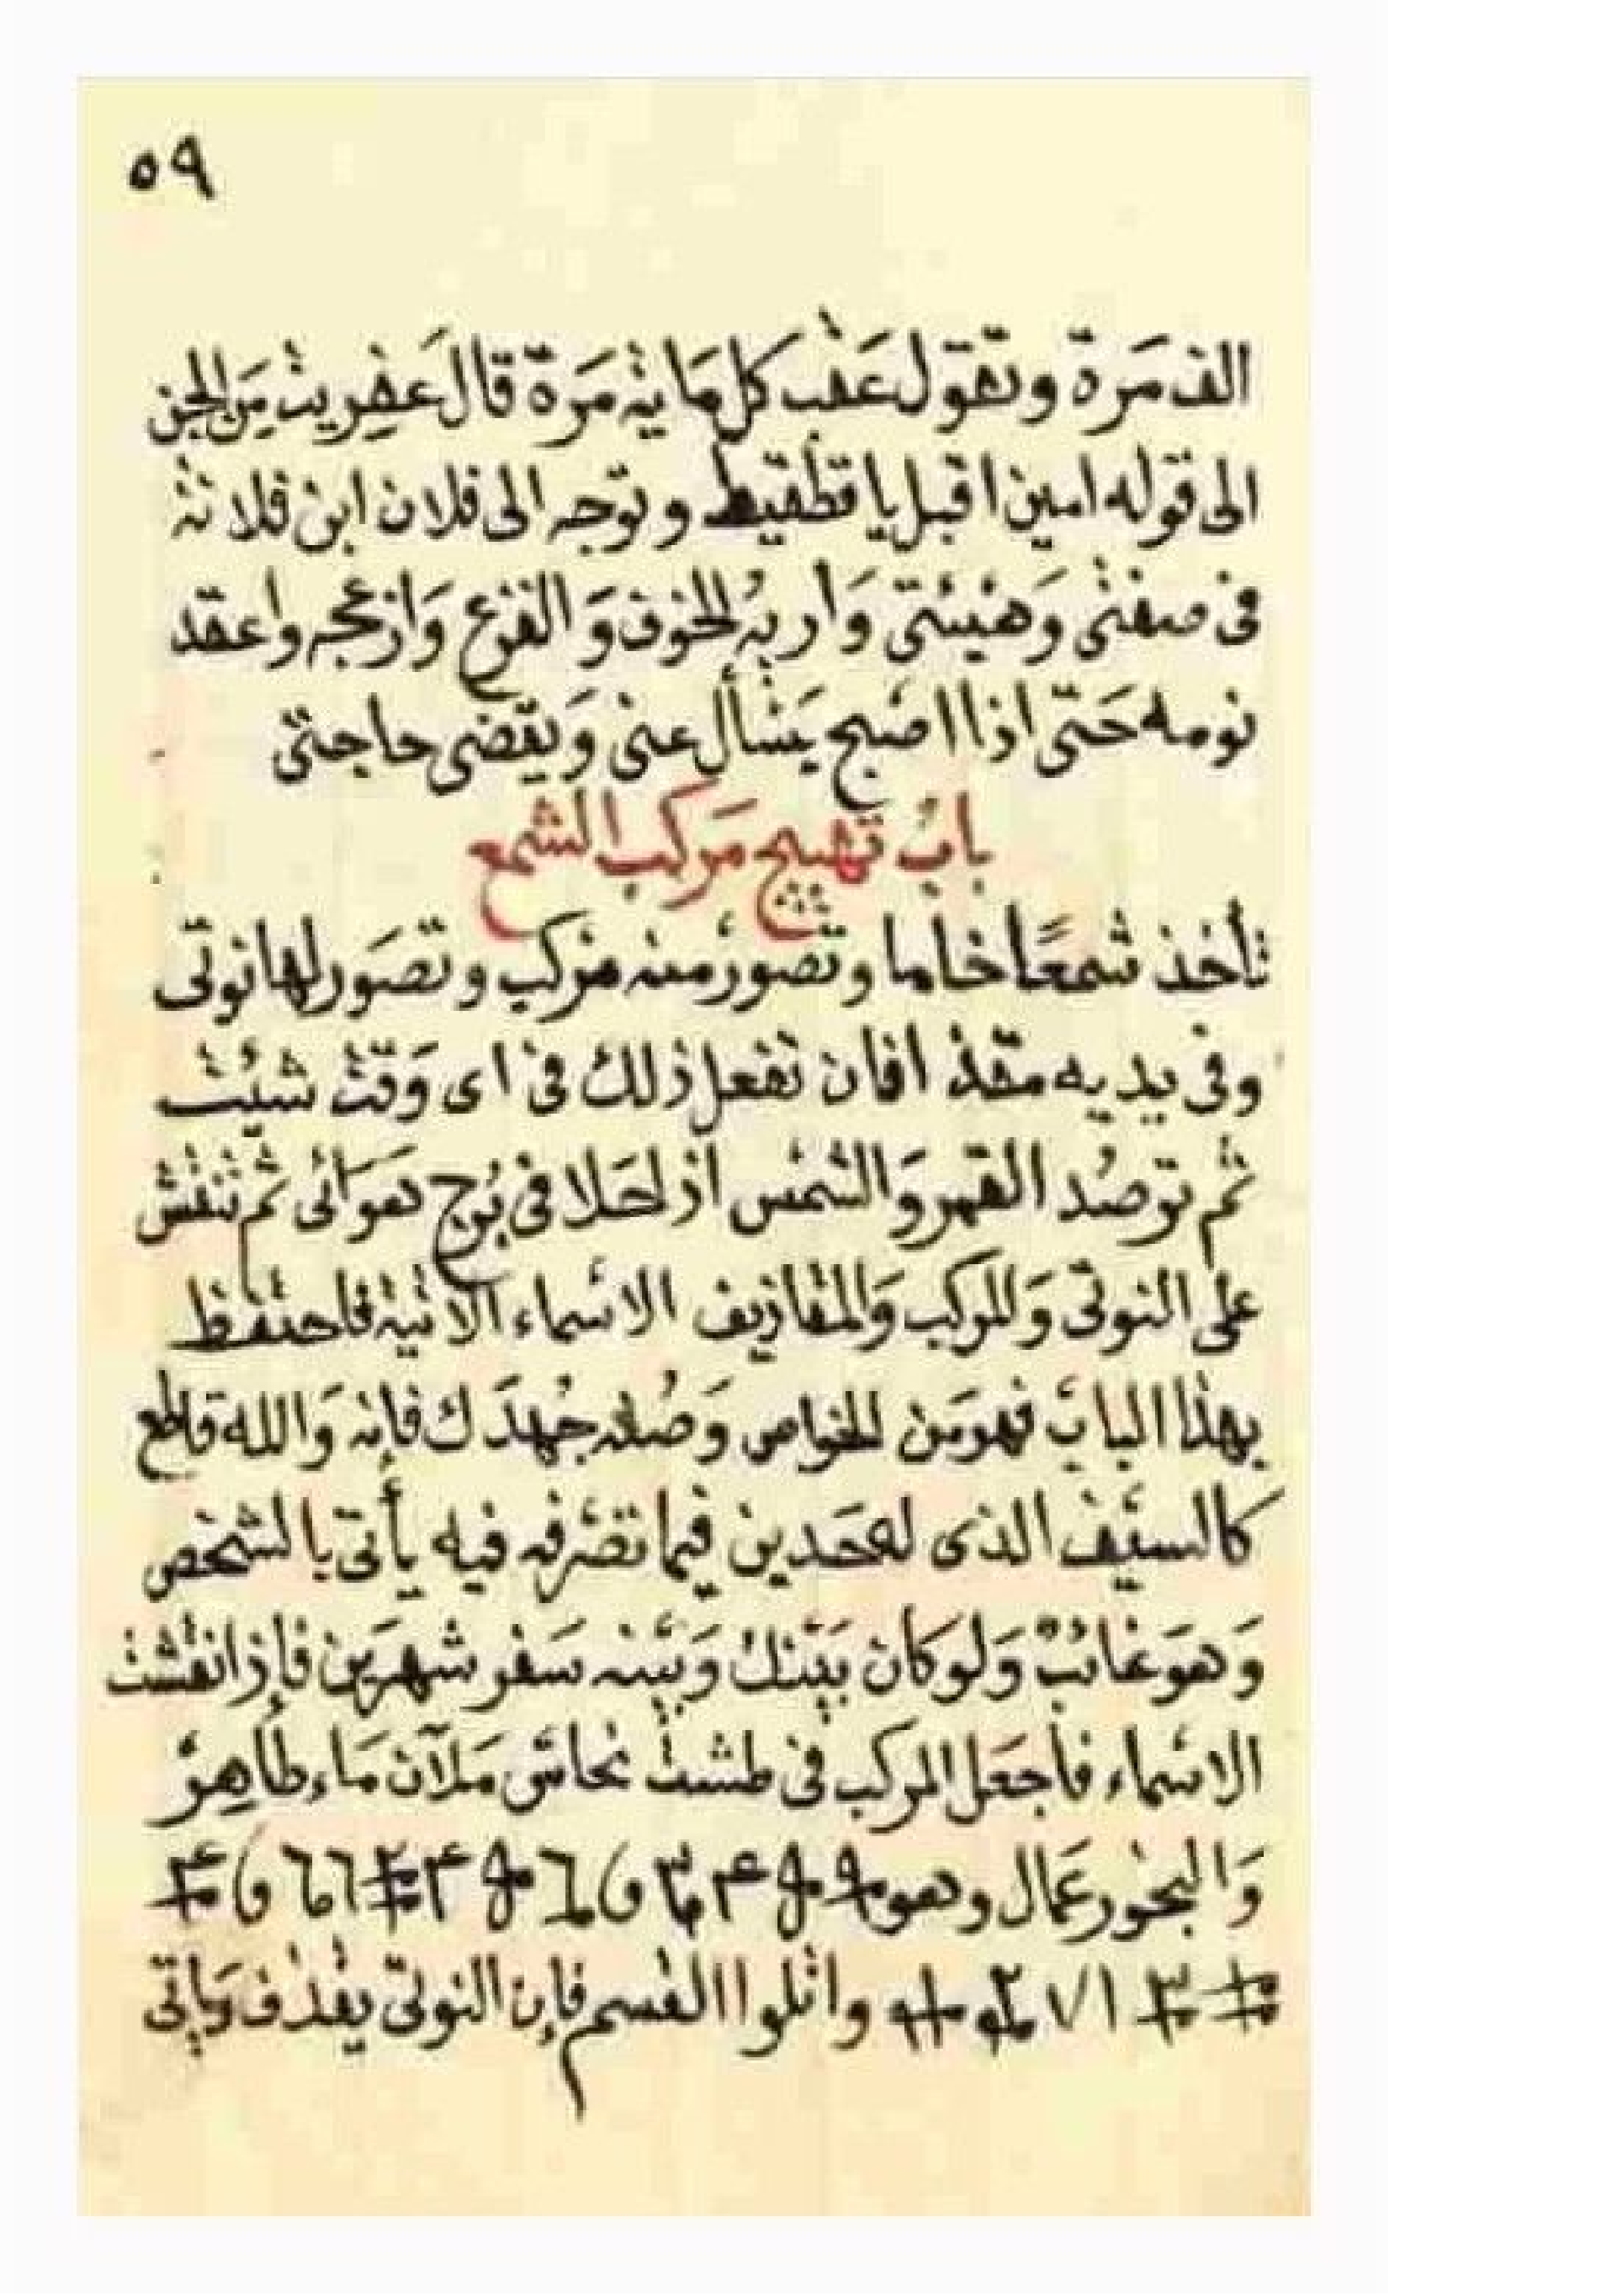 ٥٩
الف مَرة وتقول عَقب كل مَاية مَرة قالَ عَفِريتٌ مِنَ الجن
الى قوله امين اقبل يا قطقيط وتوجه الى فلان ابن فلانة
فى صفتى وَهَيئتى وَاريهُ الخوف وَالفزع وَازعجه واعقد
نومه حَتى اذا اصبح يَسأل عنى وَيقضى حاجتى
بابُ تهييج مَركب الشمع
تأخذ شمعًا خاما وتصورُ منه مركب وتصَور لها نوتى
وفى يديه مقذافان تفعل ذلك فى اى وَقت شئت
ثم توصُد القمر وَالشمس اذا حَلا فى بُرج هَوَائى ثم تنقش
على النوتى وَالمركب وَالمقاذيف الاسماء الاتية فاحتفظ
بهذا البابَ فهو مَن الخواص وَصُنه جُهدَك فإنه وَالله قاطع
كالسيف الذى له حَدين فيما تصَرفه فيه يأتى بالشخص
وَهوَ غائبٌ وَلو كان بينك وَبينه سَفر شهرَين فإذا نقشت
الاسماء فأجعَل المركب فى طشت نحاس مَلآن مَاء طاهِرٌ
وَالبخور عَمال وهو
واتلوا القسم فإن النوتى يقذف وَيأتى